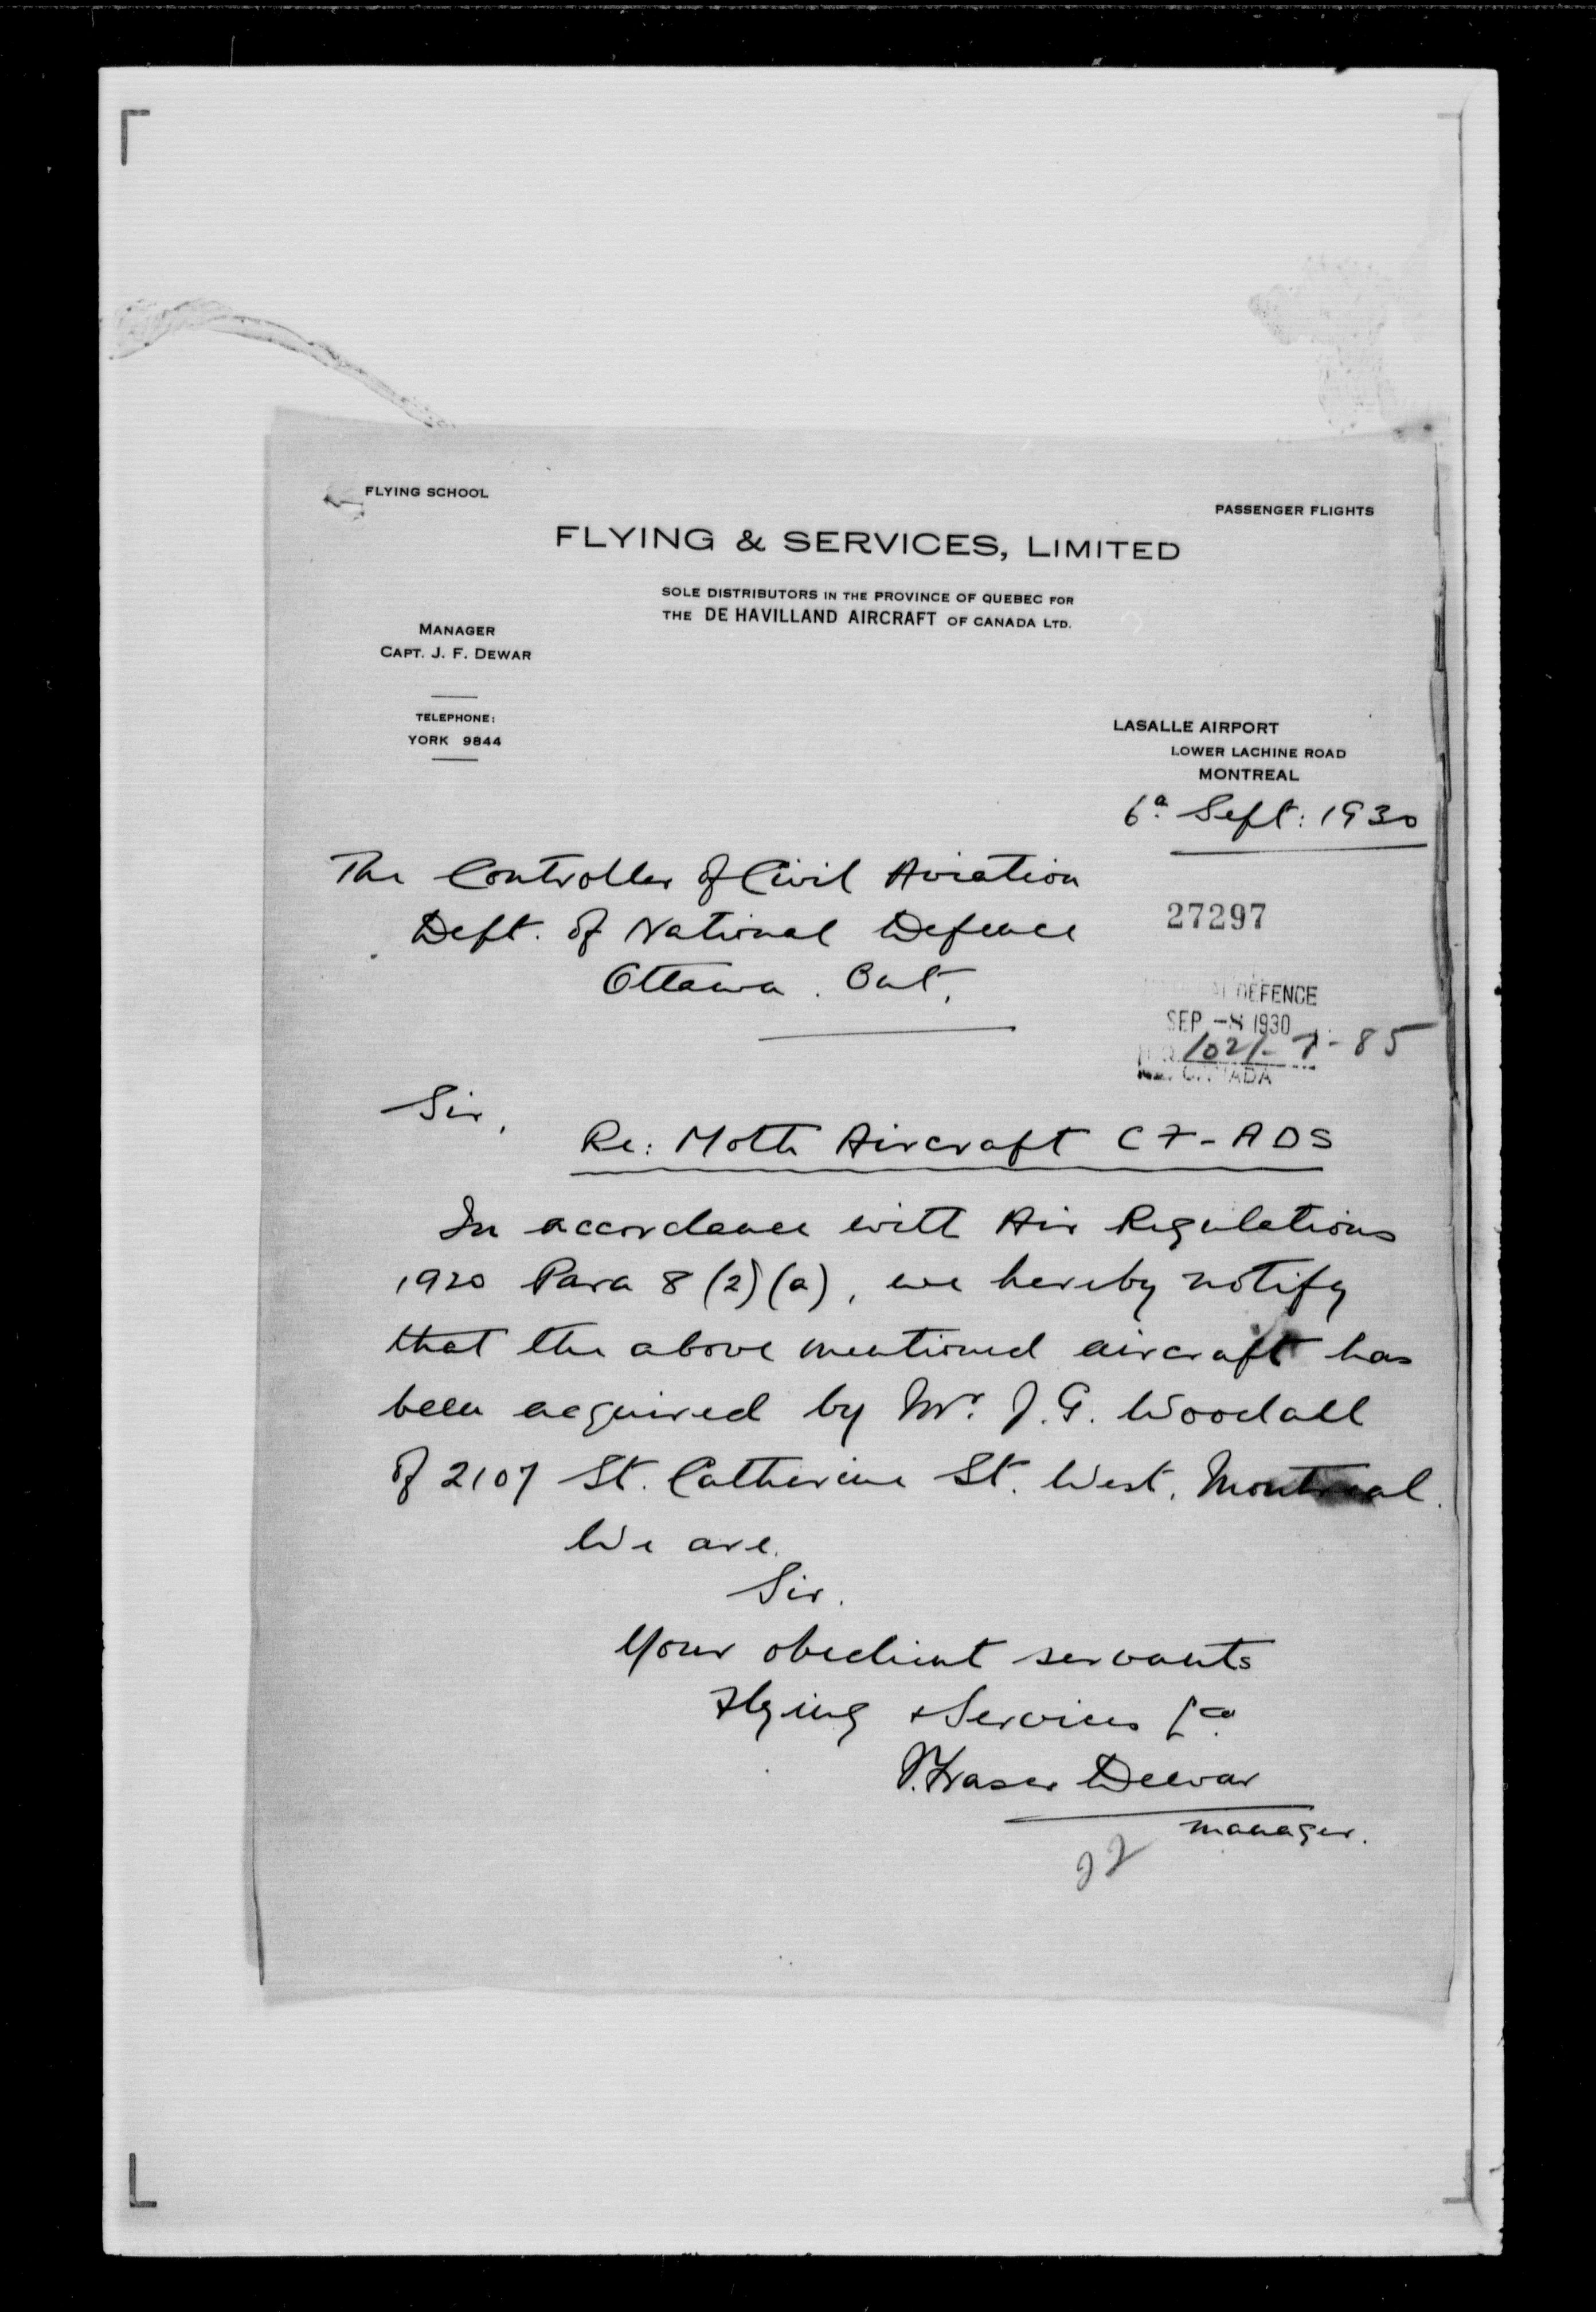 FLYING SCHOOL
PASSENGER FLIGHTS
FLYING & SERVICES, LIMITED
SOLE DISTRIBUTORS IN THE PROVINCE OF QUEBEC FOR
THE DE HAVILLAND AIRCRAFT OF CANADA LTD.
MANAGER
CAPT. J. F. DEWAR
TELEPHONE:
YORK 9844
LASALLE AIRPORT
LOWER LACHINE ROAD
MONTREAL
6th Sept: 1930
The Controller of Civil Aviation
Dept. of National Defence
Ottawa. Ont.
27297
DEFENCE
SEP -8 1930
1021-7-85
CANADA
Sir,
Re: Moth Aircraft CF-ADS
In accordance with Air Regulations
1920 Para 8 (2)(a), we hereby notify
that the above mentioned aircraft has
been acquired by Mr. J. G. Woodall
of 2107 St. Catherine St. West, Montreal.
We are.
Sir.
Your obedient servants
Flying & Services Ltd
J. Fraser Dewar
manager.
22